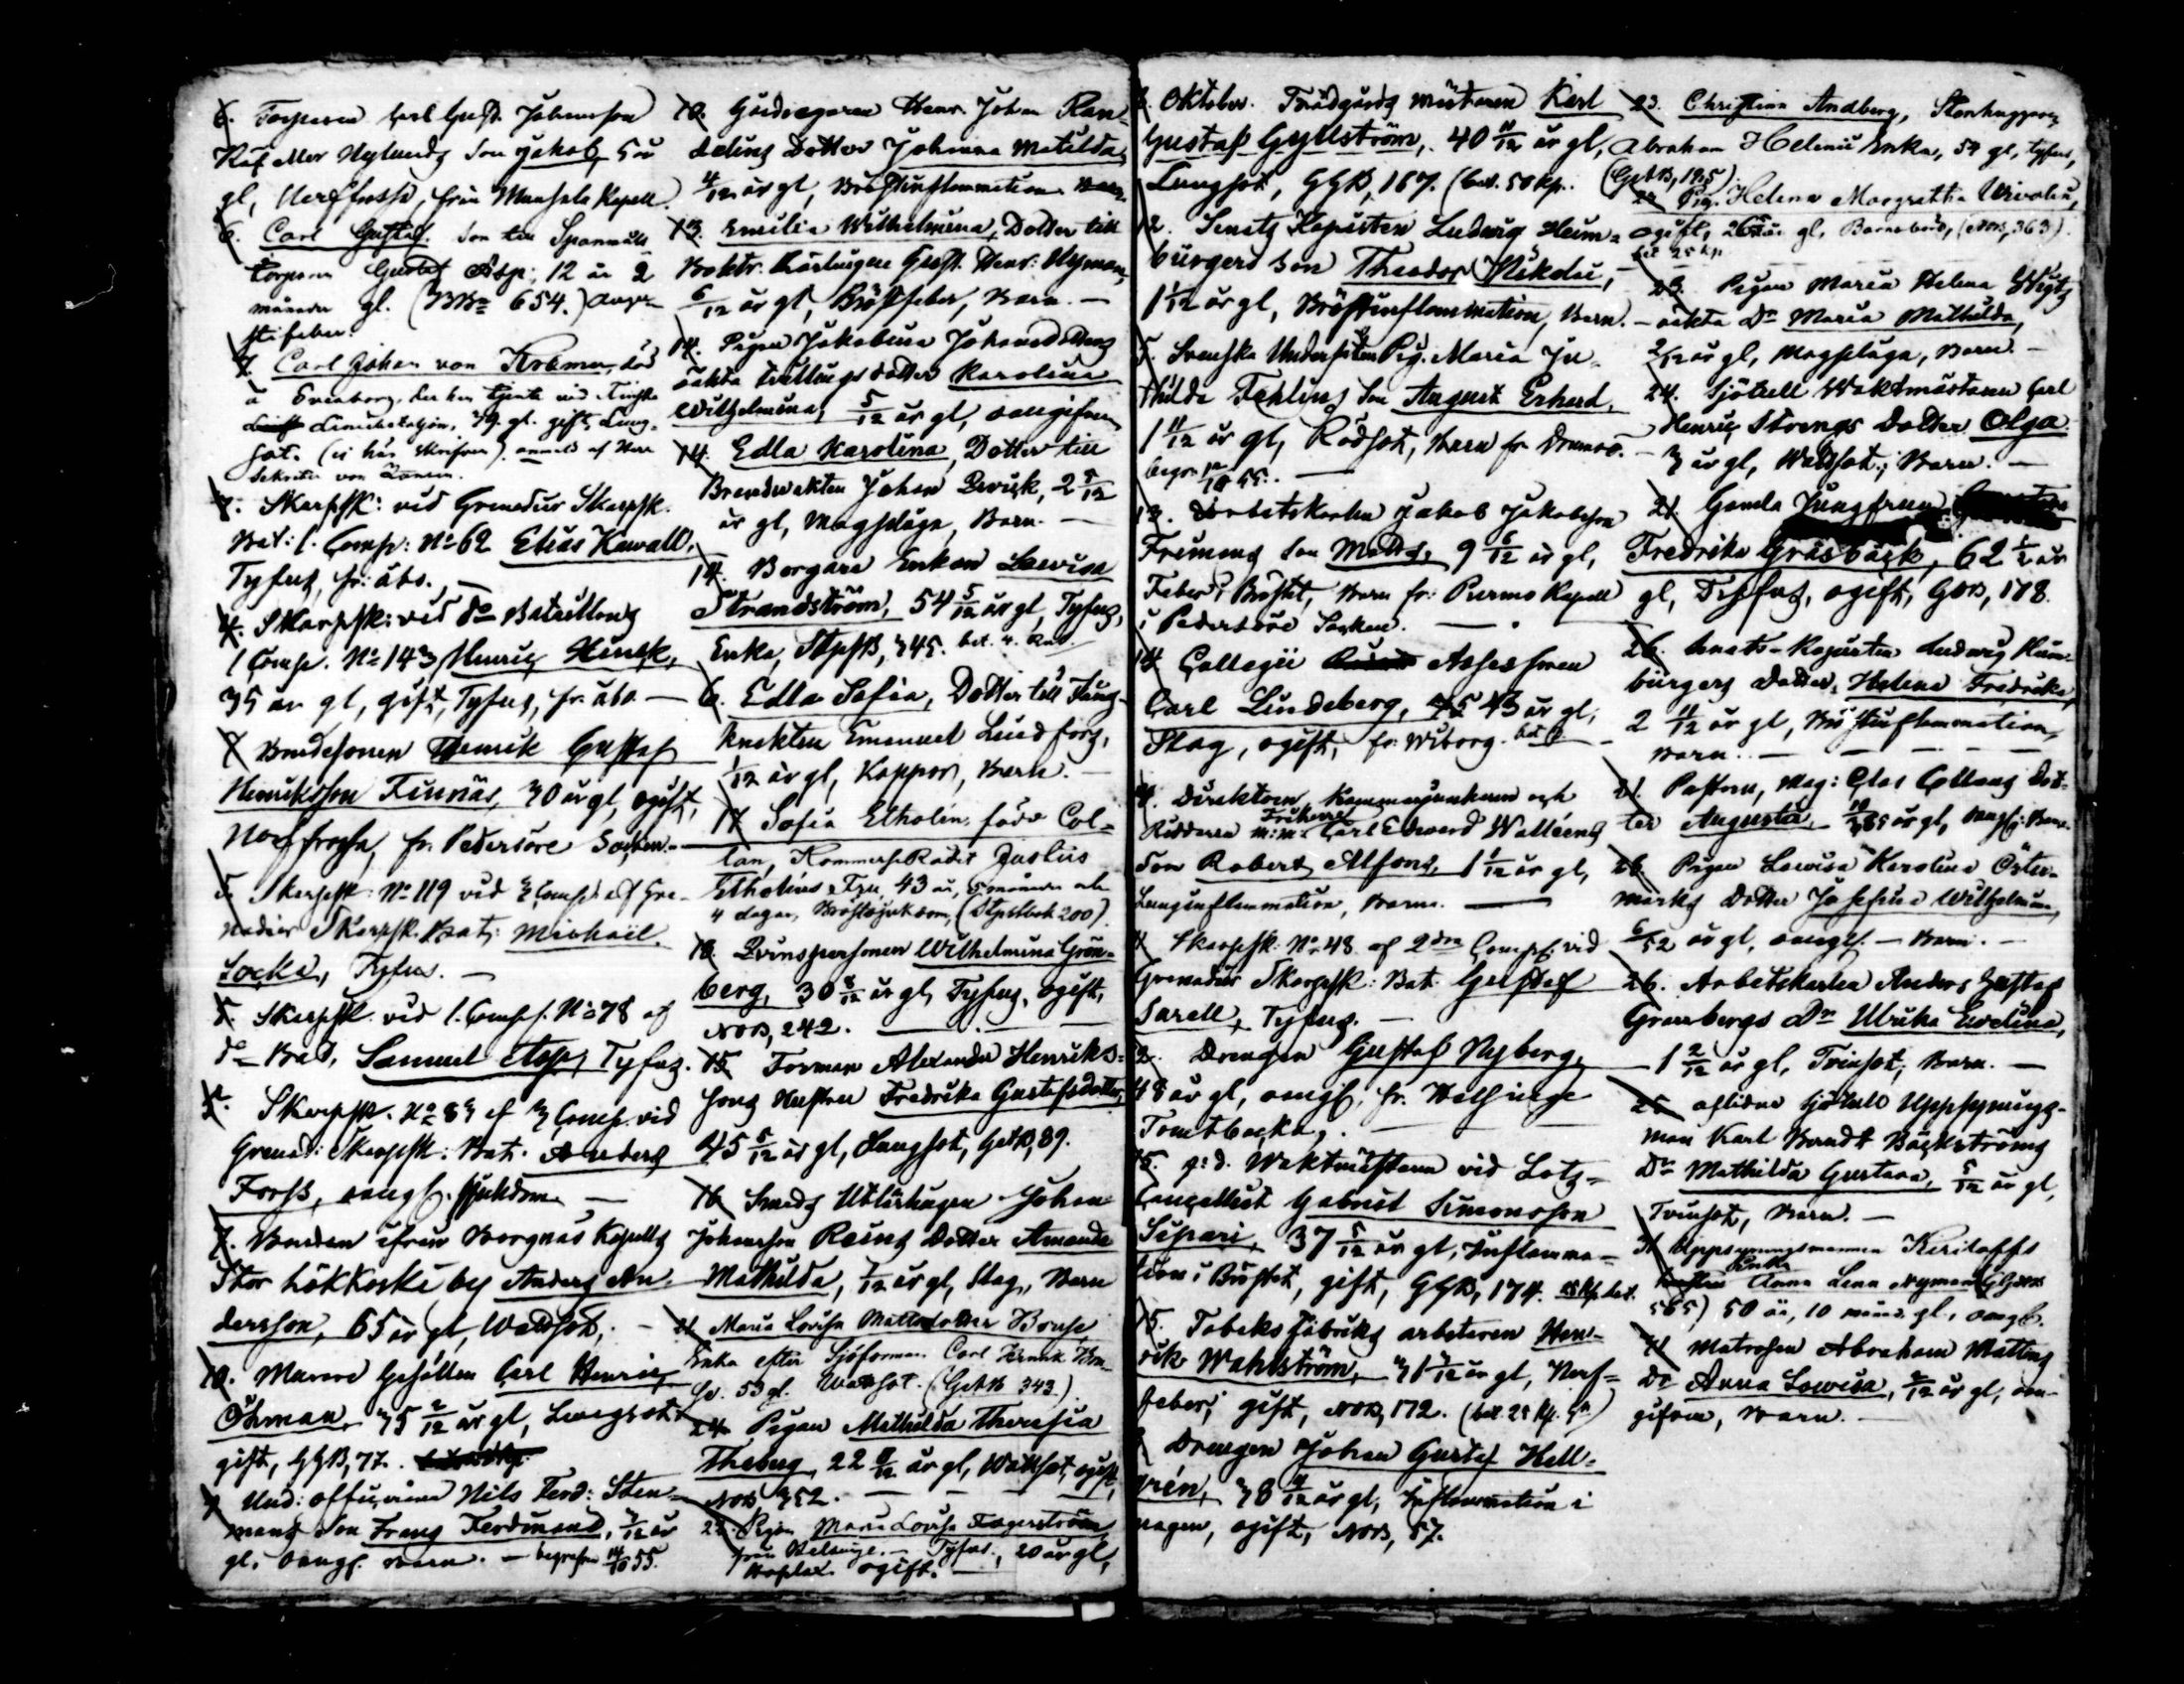 6. Torparen Carl Gust. Johansson
eller Nylunds son Jakob, 5 år
gl, från Kapell.
6. Carl Gustaf. son till Spannmåls
torparen Gustaf Asp, 12 år 2
månader gl. (654.)
feber.
7. Carl Johan von död
å Sveaborg, der han tjente vid Finska
39. gl. gift, Lung-
sot. (ej här skrifven) anmäld af Herr
Sekreter von
7. Skarpsk: vid Grenadier Skarpsk.
Bat: 1. Comp: No 62 Elias Kawall,
Tyfus, fr: åbo.
4. Skarpsk: vid do Bataillons
1 Comp. No 143 Henric
35 år gl, gift, Tyfus, fr. åbo —
7 Bondesonen Henrik Gustaf
Henriksson Finnäs, 30 år gl, ogift,
fr. Pedersöre Socken.—
5. Skarpsk: No 119 vid 3 Comp: af Gre-
nadier Skarpsk. Bat: Michael
Locki, Tyfus. —
5. Skarpsk. vid 1. Comp. No 78 af
do Bat, Samuel Asp, Tyfus.
Skarpsk. No 83 af 3 Comp. vid
Grenad: Skarpsk: Bat. Anders
Forss, sjukdom —
7. Bonden ifrån Borgnäs Kapells
Stor Lökkoski by Anders An-
dersson, 65 år gl, Wattsot, —
10. Murare Gesällen Carl Henric
Öhman 35 2/12 år gl, Lungsot
gift, GGB, 77.
Und: officeren Nils Ferd: Sten-
mans son Frans Ferdinand, 3/12 år
gl, barn. — begrafven 14/10 55.
10. Gårdsegaren Henr. Johan Ran-
delins Dotter Johanna Matilda,
4/12 år gl, Bröstinflammation Barn.
13. Emilia Wilhelmina, Dotter till
Boktr. Lärlingen Gust. Henr: Nyman,
6/12 år gl, Bröstfeber, Barn. —
14. Pigan Jakobina Johansdotters
oäkta trillings dotter Karolina
Wilhelmina, 5/12 år gl, oangifven
14. Edla Karolina, Dotter till
Brandvakten Johan 2 5/12
år gl, Magplåga, Barn. —
14. Borgare Enkan Lovisa
Strandström, 54 5/12 år gl, Tyfus,
Enka, StpsB, 345. bet. 4. Rub.
6. Edla Sofia, Dotter till Fång-
knekten Emanuel Lindfors,
1/12 år gl, Koppor, Barn. —
17 Sofia Etholin, född Col-
lan, Kommerse Rådet Justus
Etholins Fru, 43 år, 5 månader och
4 dagar, Bröstsjukdom, (Stpslbok 200)
18. Qvinspersonen Wilhelmina Grön-
berg, 30 8/12 år gl, Tyfus, ogift,
NoB, 242. —
15 Forman Alexander Henriks-
sons Hustru Fredrika Gustafsdotter,
45 5/12 år gl, Lungsot, GetB, 89.
16 Smeds Utlärlingen Johan
Johansson Reins Dotter Amanda
Mathilda, 7/12 år gl, Slag, Barn
21 Maria Lovisa Mattsdotter
Enka efter Sjöforman Carl Henrik
53 gl. Wattsot. (GetB 343)
24 Pigan Mathilda Theresia
Theberg, 22 8/12 år gl, Wattsot, ogift,
NoB 352. —
22 Pigan Maria Lovisa Fagerström
från Helsinge. — Tyfus, 20 år gl,
Hoplax. ogift. —
Oktober. Trädgårds mästaren Karl
Gustaf Gyllström, 40 11/12 år gl,
Lungsot, GGB, 187. (bet. 50 kp.
12. Senats Kopisten Ludvig Heim-
bürgers son Theodor Nikolai,
1 1/12 år gl, Bröstinflammation, Barn. —
5. Svenska Undersåten Pig. Maria Ju-
Fehlins son August Erhard,
1 11/12 år gl, Rödsot, Barn fr
begr. 12/10 55. —
13. Arbetskarlen Jakob Jakobsson
Frimans son Matts, 9 6/12 år gl,
Feber i Bröstet, Barn fr: Purmo Kapell
i Pedersöre Socken. —
14 Collegii Assessoren
Carl Lindeberg, 43 år gl,
Slag, ogift, fr. Wiborg.
Direktorn, Kammarjunkaren och
Riddaren m:m: Friherre Carl Edward Walléens
son Robert Alfons, 1 1/12 år gl,
Lunginflammation, Barn. —
Skarpsk. No 48 af 2dra Comp. vid
Grenadier Skarpsk: Bat. Gustaf
Sarell, Tyfus. —
Drengen Gustaf Nyberg,
48 år gl, fr. Helsinge
Tomtbacka, —
15. p:d. Waktmästaren vid Lots-
Cancelliet Gabriel Simonsson
Sipari, 37 5/12 år gl, Inflamma-
tion i Bröstet, gift, GGB, 174.
15. Tobaks fabriks arbetaren Hen-
rik Wahlström, 31 3/12 år gl, Nerf-
feber, gift, NoB, 172. (bet. 25 kp.
Drengen Johan Gustaf Hell-
grén, 38 4/12 år gl, Inflammation i
magen, ogift, NoB, 57.
23. Christina Andberg, Stenhuggaren
Abraham Helenii Enka, 54 gl, tyfus,
(GetB, 195)
22 Pig. Helena Margretha
ogift, 26 år gl, Barnsbörd, (NoB, 363).
bet 25 kp.
23. Pigan Maria Helena
— oäkta Dr Maria Mathilda,
2/12 år gl, Magplåga, Barn. —
24. Sjötull Waktmästaren Carl
Henric Strengs Dotter Olga
— 3 år gl, Wattsot, Barn. —
21. Gamla Jungfrun
Fredrika Gräsbäck, 62 1/2 år
gl, Tyfus, ogift, GoB, 178.
26. Senats-Kopisten Ludvig Heim-
bürgers Dotter, Helena Fredrika,
2 11/12 år gl, Bröstinflammation,
Barn. —
21. Pastorn, Mag: Clas Collans Dot-
ter Augusta, 10/365 år gl, Barn.
26. Pigan Lovisa Karolina Öster-
marks Dotter Josefina Wilhelmina,
6/52 år gl, oangif. — Barn. —
26. Arbetskarlen Anders Gustaf
Granbergs Dr Ulrika Evelina,
— 1 2/12 år gl, Tvinsot, Barn. —
25 aflidne Sjötull Uppsynings-
man Karl Berndt Bäckströms
Dr Mathilda Gustava, 5/12 år gl,
Tvinsot, Barn. —
31 Uppsyningsmannen
Enka Anna Lena Nyman
565) 50 år, 10 mån. gl, oangif.
31 Matrosen Abraham Matts
Dr Anna Lovisa, 2/12 år gl, oan-
gifven, Barn. —